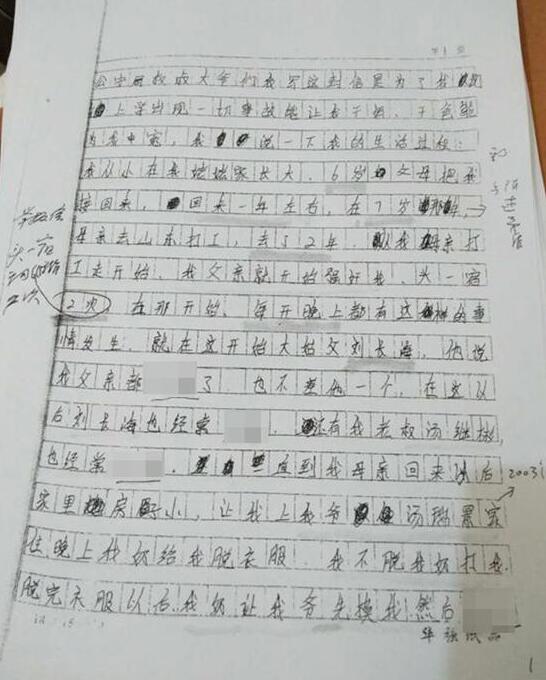 第1页
公安局叔叔大爷们我写这封信是为了我
上学出现一切事故能让我干妈、干爸能
为我申冤，我说一下我的生活过程：
我从小在我姥姥家长大。6岁父母把我
接回来，回来一年左右，在7岁那年，
母亲去山东打工，去了2年。从我母亲打
工走开始，我父亲就开始强奸我，头一宿
2次 在那开始、每天晚上都有这样的事
情发生。就在这开始大姑父刘长海，他说
我父亲都 了．也不差他一个，在这以
后刘长海也经常 。还有我老叔汤继彬，
也经常 ．一直到我母亲回来以后
2003
家里房子小，让我上我爷汤瑞景家
住晚上我奶给我脱衣服．我不脱我奶打我．
脱完衣服以后我奶让我爷先 我然后
头一宿
2次
1